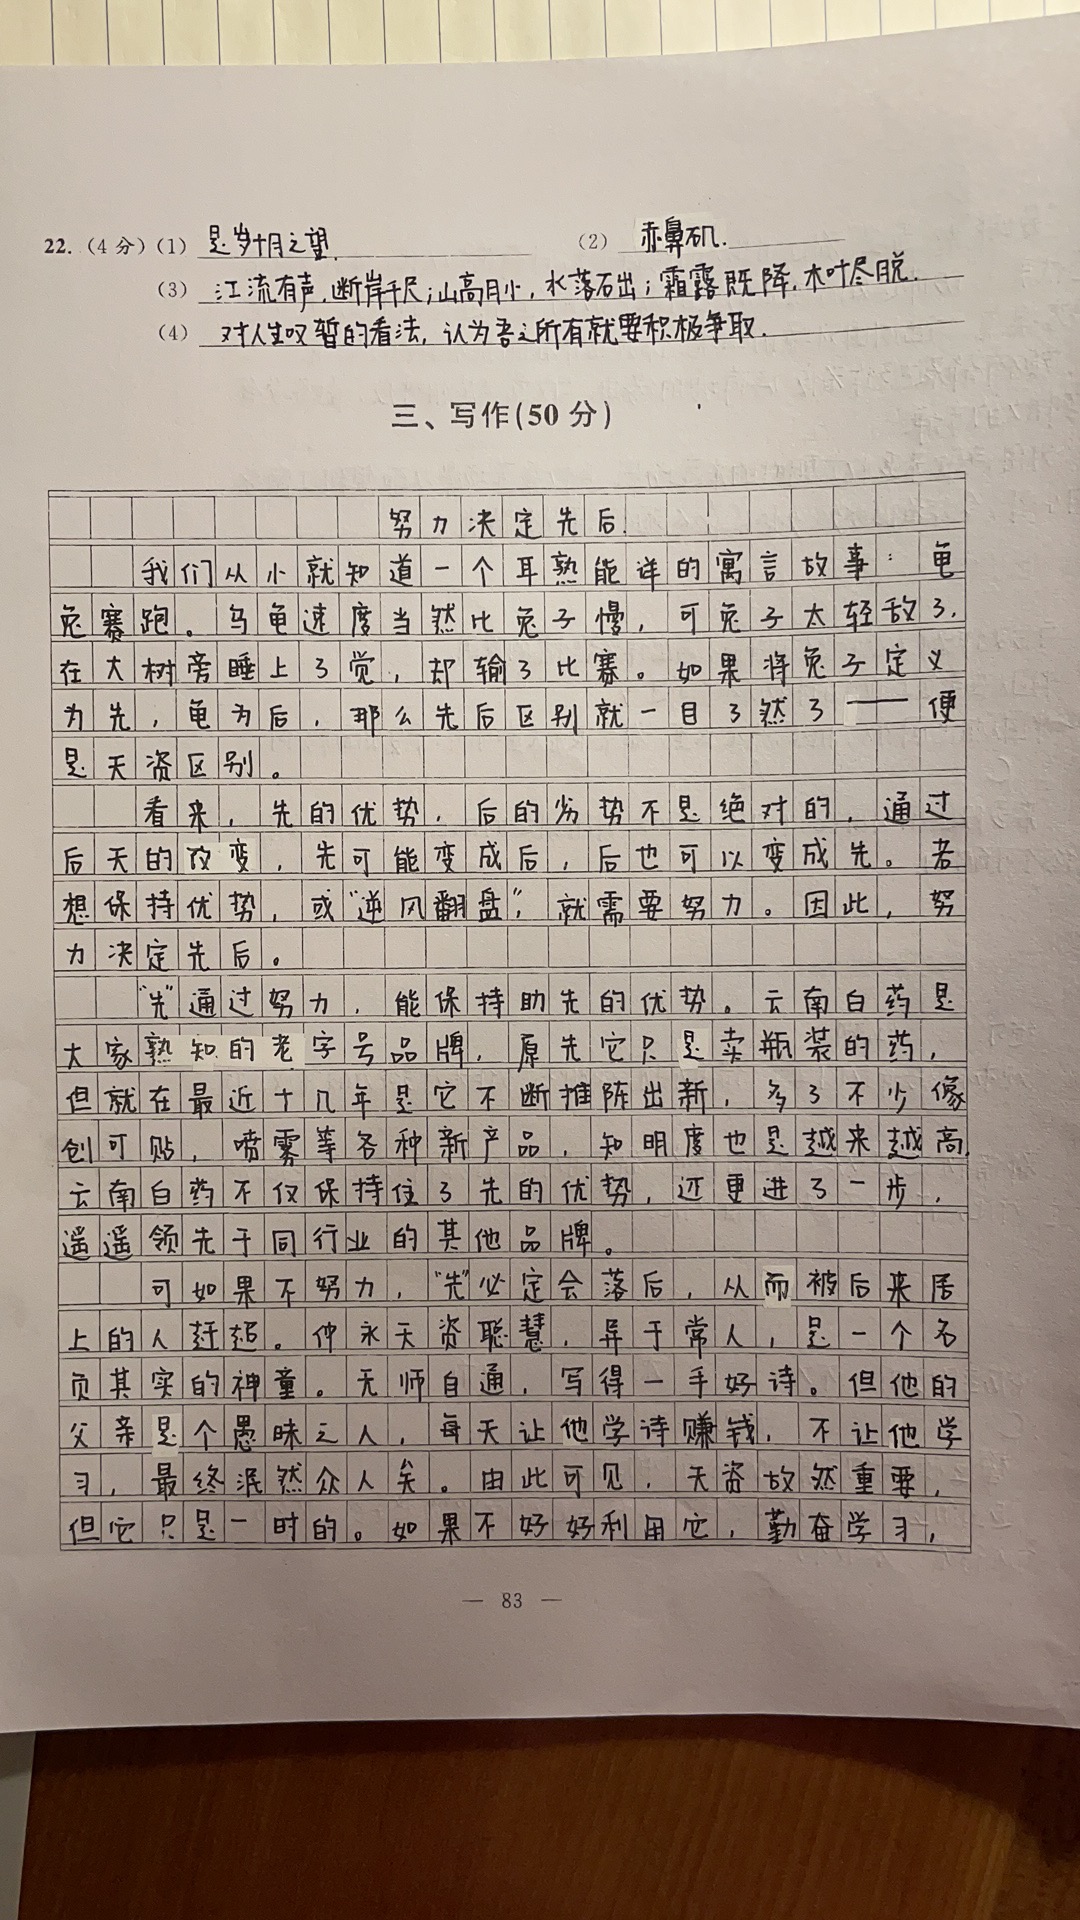 22.（4分）（1） 是岁十月之望. （2） 赤鼻矶.
（3） 江流有声,断岸千尺;山高月小,水落石出;霜露既降,木叶尽脱.
（4） 对人生叹暂的看法,认为吾之所有就要积极争取.
三、写作(50分)
努力决定先后.
我们从小就知道一个耳熟能详的寓言故事：龟
兔赛跑。乌龟速度当然比兔子慢，可兔子太轻敌了,
在大树旁睡上了觉，却输了比赛。如果将兔子定义
为先，龟为后，那么先后区别就一目了然了——便
是天资区别。
看来，先的优势，后的劣势不是绝对的，通过
后天的改变，先可能变成后，后也可以变成先。若
想保持优势，或“逆风翻盘”，就需要努力。因此，努
力决定先后。
“先”通过努力，能保持助先的优势。云南白药是
大家熟知的老字号品牌，原先它只是卖瓶装的药，
但就在最近十几年是它不断推陈出新，多了不少像
创可贴，喷雾等各种新产品，知明度也是越来越高,
云南白药不仅保持住了先的优势，还更进了一步，
遥遥领先于同行业的其他品牌。
可如果不努力，“先”必定会落后，从而被后来居
上的人赶超。仲永天资聪慧，异于常人，是一个名
负其实的神童。无师自通，写得一手好诗。但他的
父亲是个愚昧之人，每天让他学诗赚钱，不让他学
习，最终泯然众人矣。由此可见，天资故然重要，
但它只是一时的。如果不好好利用它，勤奋学习，
— 83 —